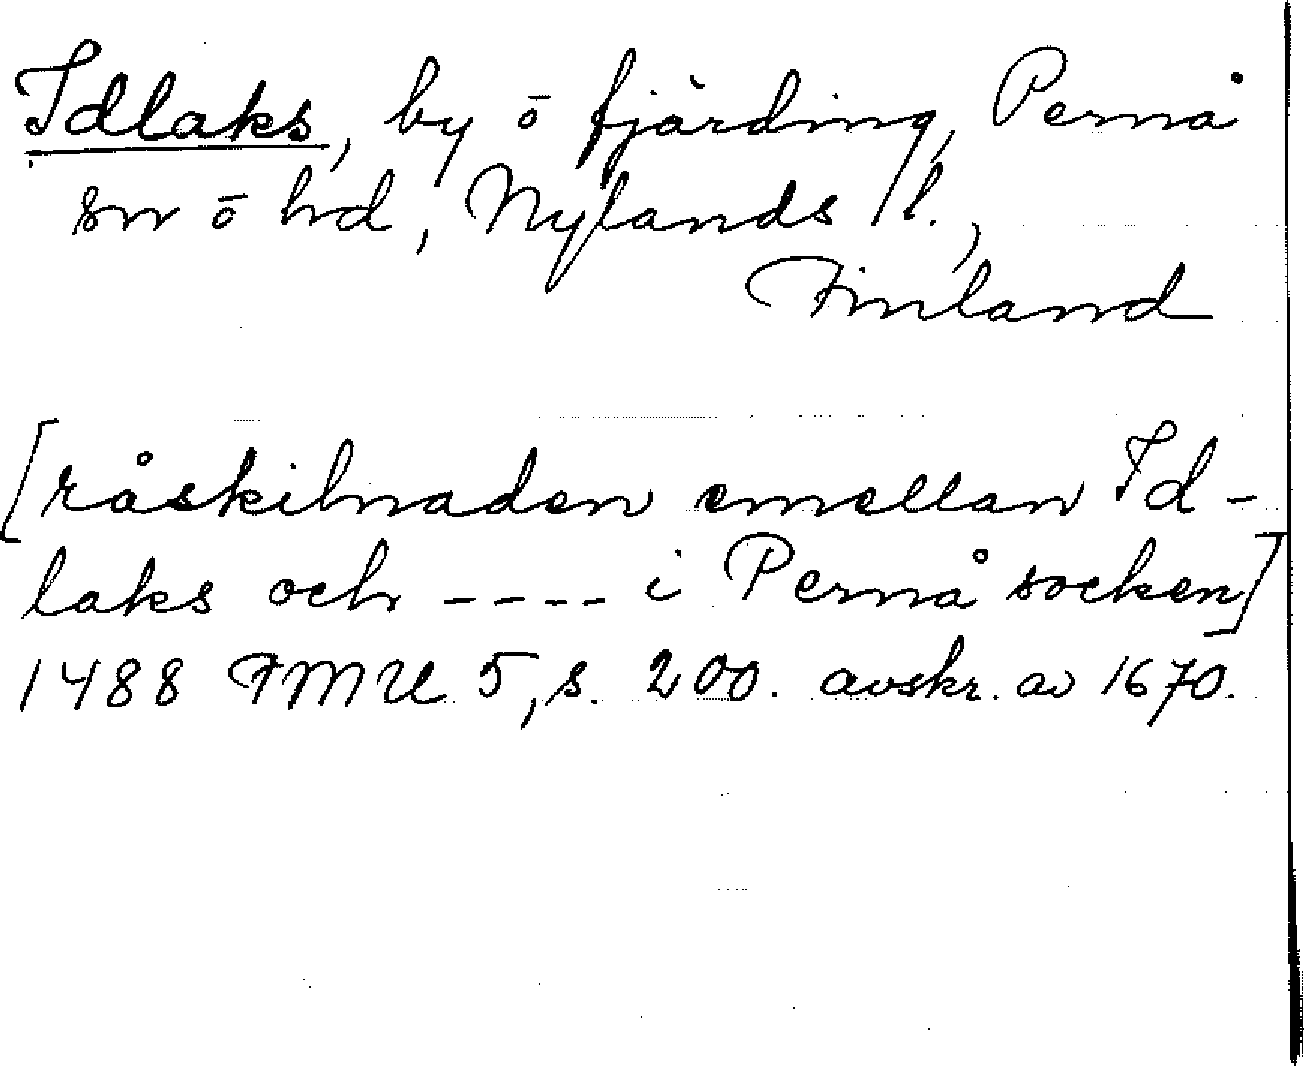 Idlaks, by ō fjärding, Pernå
sn ō hd, Nylands l.,
Finland
[råskilnaden emellan Id-
laks och ---- i Pernå socken]
1488 FMU 5, s. 200. avskr. av 1670.